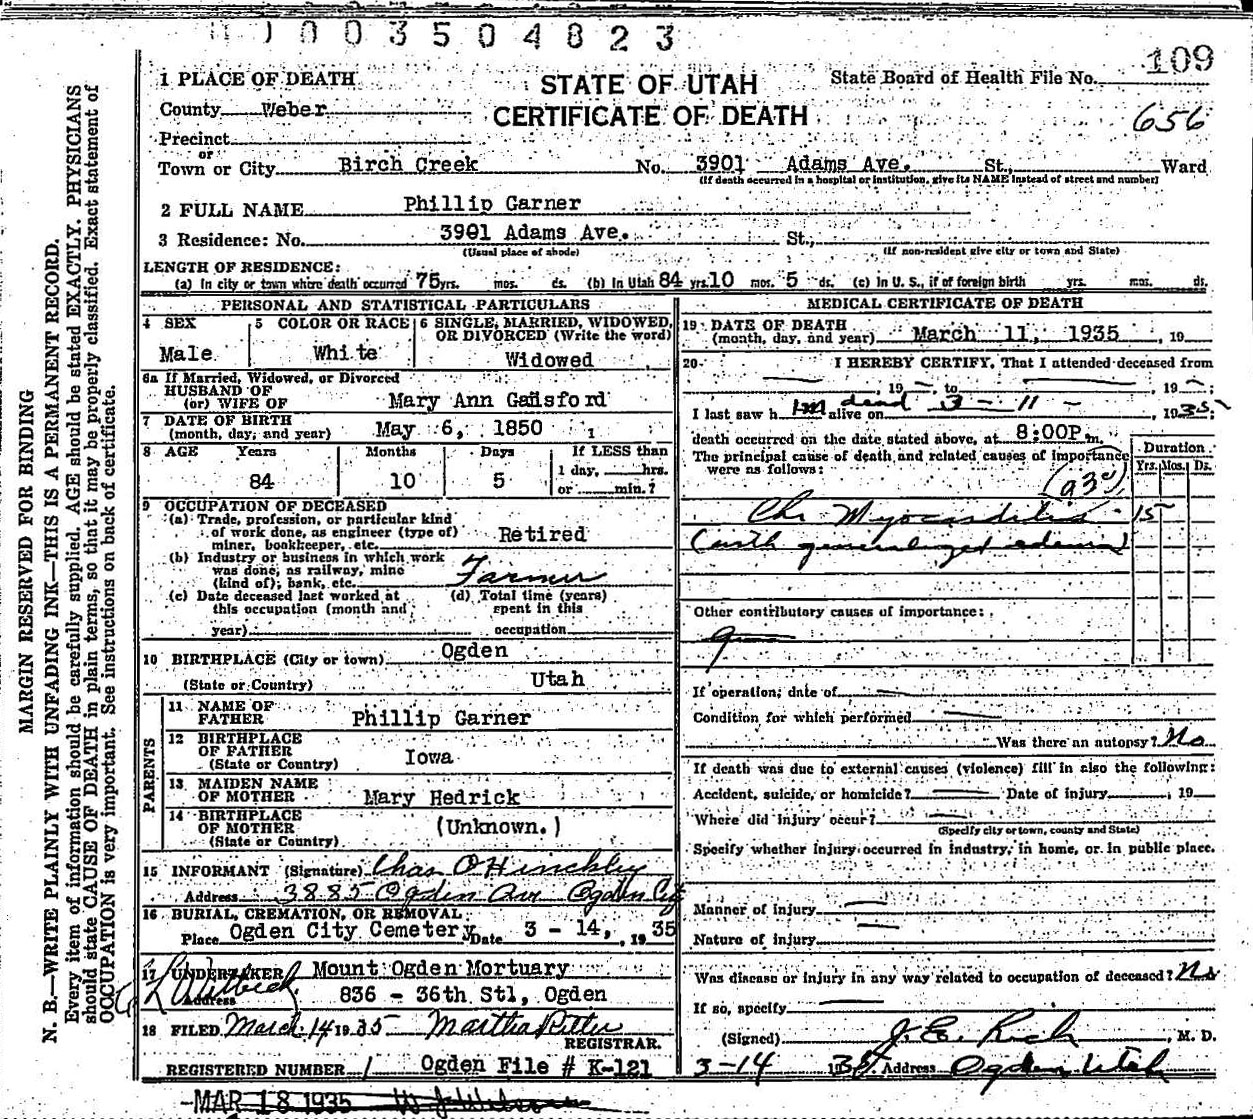 1 0 0 3 5 0 4 8 2 3
109
1 PLACE OF DEATH
STATE OF UTAH
State Board of Health File No.
County Weber
CERTIFICATE OF DEATH
656
Precinct
or
Town or City Birch Creek No. 3901 Adams Ave. St., Ward
(If death occurred in a hospital or institution, give its NAME instead of street and number)
2 FULL NAME Phillip Garner
3 Residence: No. 3901 Adams Ave. St.,
(Usual place of abode) (If non-resident give city or town and State)
LENGTH OF RESIDENCE:
(a) In city or town where death occurred 75 yrs. mos. ds. (b) In Utah 84 yrs. 10 mos. 5 ds. (c) In U. S., if of foreign birth yrs. mos. ds.
PERSONAL AND STATISTICAL PARTICULARS
4 SEX
Male
5 COLOR OR RACE
White
6 SINGLE, MARRIED, WIDOWED,
OR DIVORCED (Write the word)
Widowed
6a If Married, Widowed, or Divorced
HUSBAND OF
(or) WIFE OF Mary Ann Gailsford
7 DATE OF BIRTH
(month, day, and year) May 6, 1850
8 AGE Years Months Days If LESS than
1 day, hrs.
84 10 5 or min.?
9 OCCUPATION OF DECEASED
(a) Trade, profession, or particular kind
of work done, as engineer (type of)
miner, bookkeeper, etc. Retired
(b) Industry or business in which work
was done, as railway, mine
(kind of); bank, etc. Farmer
(c) Date deceased last worked at
this occupation (month and
year)
(d) Total time (years)
spent in this
occupation
10 BIRTHPLACE (City or town) Ogden
(State or Country) Utah
PARENTS
11 NAME OF
FATHER Phillip Garner
12 BIRTHPLACE
OF FATHER
(State or Country) Iowa
13 MAIDEN NAME
OF MOTHER Mary Hedrick
14 BIRTHPLACE
OF MOTHER
(State or Country) (Unknown.)
15 INFORMANT (Signature) Chas O Hinchley
Address 3885 Ogden Ave Ogden City
16 BURIAL, CREMATION, OR REMOVAL
Place Ogden City Cemetery Date 3 - 14, 19 35
17 UNDERTAKER Mount Ogden Mortuary
Address 836 - 36th Stl, Ogden
18 FILED March 14 19 35 Martha Ritter
REGISTRAR.
REGISTERED NUMBER / Ogden File # K-121
MAR 18 1935
MEDICAL CERTIFICATE OF DEATH
19 DATE OF DEATH
(month, day, and year) March 11, 1935, 19
20 I HEREBY CERTIFY, That I attended deceased from
, 19 to , 19 ;
I last saw h im dead alive on 3 - 11 - , 1935;
death occurred on the date stated above, at 8:00P m.
The principal cause of death and related causes of importance
were as follows:
Duration
Yrs. Mos. Ds.
(93c)
Chr Myocarditis 15
(with generalized edema)
Other contributory causes of importance:
If operation, date of
Condition for which performed
Was there an autopsy? No
If death was due to external causes (violence) fill in also the following:
Accident, suicide, or homicide? Date of injury , 19
Where did injury occur?
(Specify city or town, county and State)
Specify whether injury occurred in industry, in home, or in public place.
Manner of injury
Nature of injury
Was disease or injury in any way related to occupation of deceased? No
If so, specify
(Signed) J. E. Rich, M. D.
3-14 1935 Address Ogden Utah
MARGIN RESERVED FOR BINDING
N. B.—WRITE PLAINLY WITH UNFADING INK—THIS IS A PERMANENT RECORD.
Every item of information should be carefully supplied. AGE should be stated EXACTLY. PHYSICIANS
should state CAUSE OF DEATH in plain terms, so that it may be properly classified. Exact statement of
OCCUPATION is very important. See instructions on back of certificate.